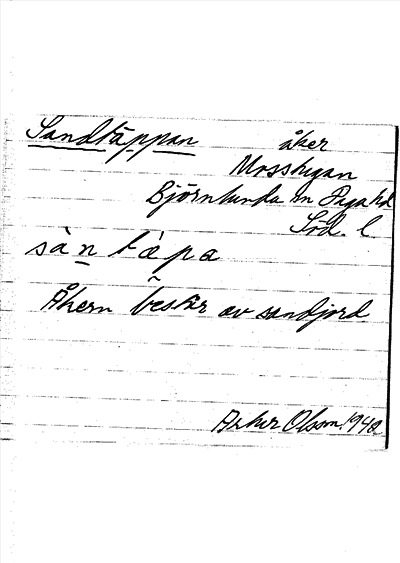 Sandtäppan åker
Mosstugan
Björnlunda sn Daga hd
Srd. l.
sàn tæ̀pa
Åkern består av sandjord
Asker Olsson. 1942